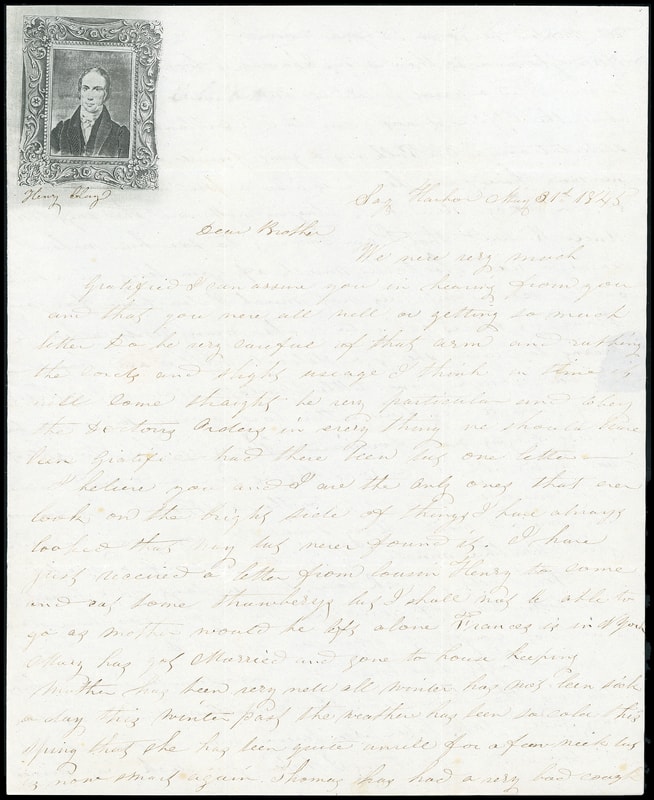 Henry Clay
Sag Harbor May 31st 1845
Dear Brother
We were very much
Gratified I can assure you in hearing from you
and that you were all well or getting so much
better Do be very careful of that arm and rubbing
the cords and slight useage I think in time it
will come straight be very particular and obey
the Doctors Orders in every thing we should have
been Gratified had there been but one letter
I believe you and I are the only ones that ever
look on the bright side of things I have always
looked that way but never found it. I have
just received a letter from Cousin Henry to come
and eat some Strawberrys but I shall not be able to
go as Mother would be left alone Frances is in N York
Mary has got Married and gone to house keeping
Mother has been very well all winter has not been sick
a day this winter past the weather has been so cold this
spring that she has been quite unwell for a few weeks but
is now smart again. Thomas has had a very bad cough